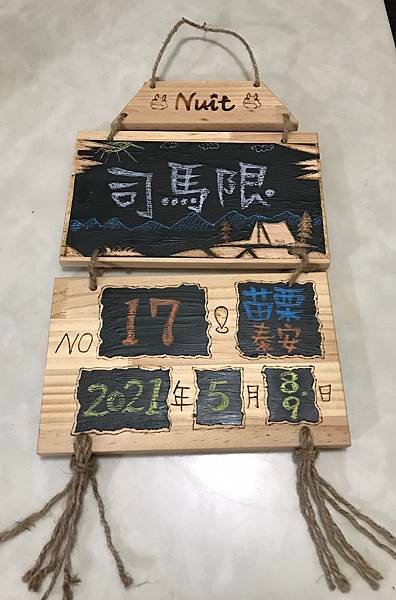 Nuit
司馬限
NO 17 ! 苗栗
泰安
2021年5月8.9日